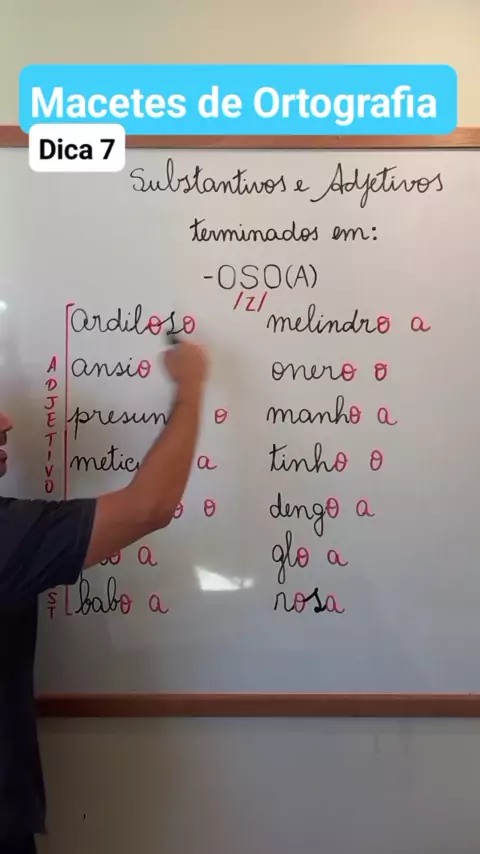 Macetes de Ortografia
Dica 7
Substantivos e Adjetivos
terminados em:
-OSO(A)
/z/
ardiloso melindro a
ansio onero o
presun o manho a
a tinho o
o o dengo a
o a glo a
babo a rosa